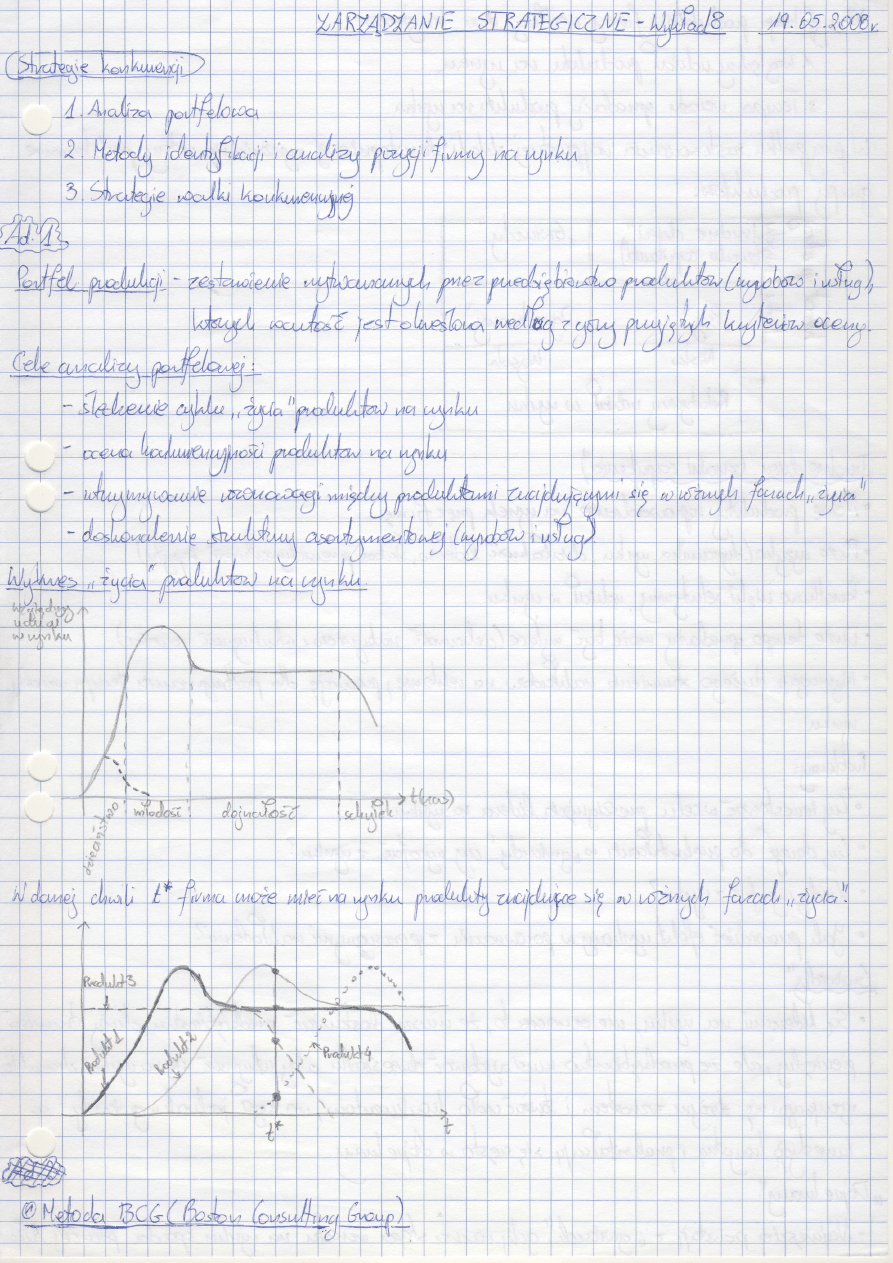 ZARZĄDZANIE STRATEGICZNE - Wykład 8 19.05.2008r.
Strategie konkurencji
1. Analiza portfelowa
2. Metody identyfikacji i analizy pozycji firmy na rynku
3. Strategie walki konkurencyjnej
Ad. 1
Portfel produkcji - zestawienie wytwarzanych przez przedsiębiorstwo produktów (wyrobów i usług),
których wartość jest określona według z góry przyjętych kryteriów oceny.
Cele analizy portfelowej:
- śledzenie cyklu "życia" produktów na rynku
- ocena konkurencyjności produktów na rynku
- utrzymywanie równowagi między produktami znajdującymi się w różnych fazach "życia"
- doskonalenie struktury asortymentowej (wyrobów i usług)
Wykres "życia" produktów na rynku.
Względny
udział
w rynku
t(czas)
dzieciństwo młodość dojrzałość schyłek
W danej chwili t* firma może mieć na rynku produkty znajdujące się w różnych fazach "życia".
Produkt 3
Produkt 1
Produkt 2
Produkt 4
t*
t
① Metoda BCG (Boston Consulting Group)